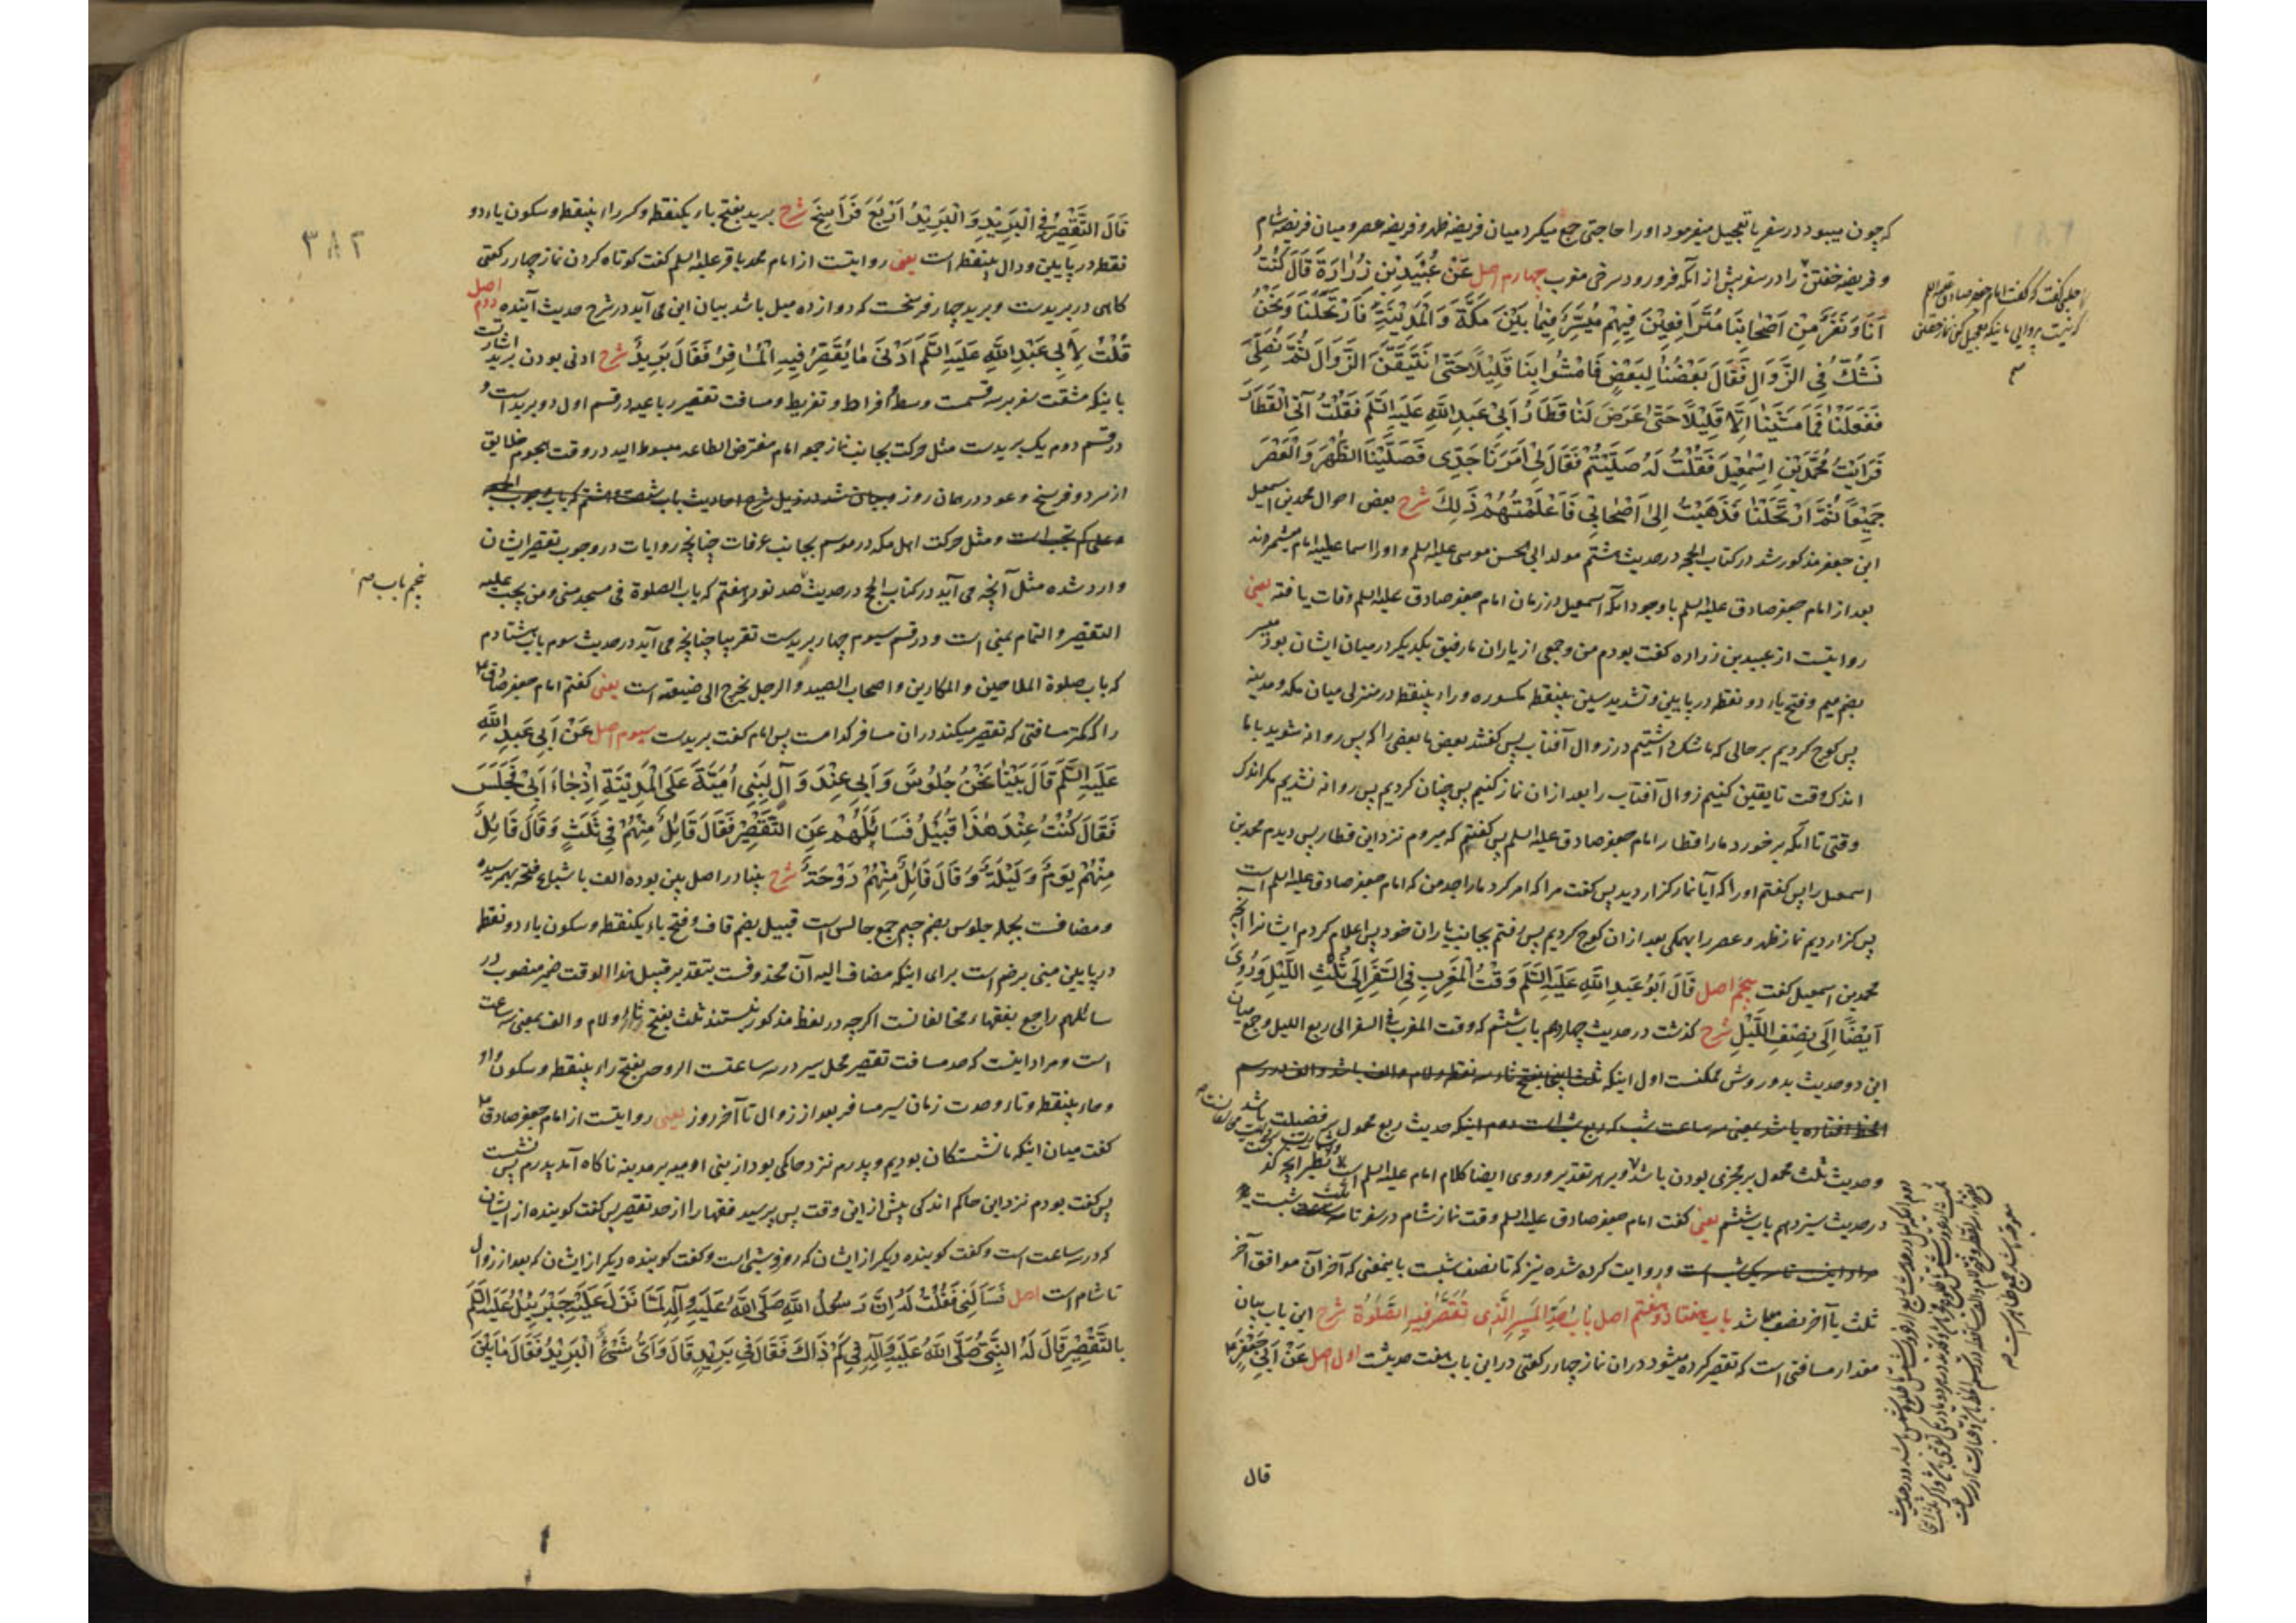 که چون میبود در سفر یا تعجیل میفرمود اورا حاجتی جمع میکرد میان فریضه ظهر و فریضه عصر و میان فریضه شام
و فریضه خفتن را در سفر پیش از آنکه فرو رود سرخی مغرب چهارم اصل عَنْ عُبَیْدِ بْنِ زُرَارَةَ قَالَ كُنْتُ
اَنَا وَ نَفَرٌ مِنْ اَصْحَابِنَا مُتَرَافِقِینَ فِیهِمْ مُیَسِّرٌ فِیمَا بَیْنَ مَكَّةَ وَ الْمَدِیْنَةِ فَارْتَحَلْنَا وَ نَحْنُ
نَشُكُّ فِی الزَّوَالِ فَقَالَ بَعْضُنَا لِبَعْضٍ فَامْشُوا بِنَا قَلِیْلًا حَتّٰی نَتَیَقَّنَ الزَّوَالَ ثُمَّ نُصَلِّیَ
فَفَعَلْنَا فَمَا مَشَیْنَا اِلَّا قَلِیْلًا حَتّٰی عَرَضَ لَنَا قَطَارُ اَبِیْ عَبْدِ اللّٰهِ عَلَیْهِ السَّلَم فَقُلْتُ اٰتِی الْقَطَارَ
فَرَاَیْتُ مُحَمَّدَ بْنَ اِسْمٰعِیْلَ فَقُلْتُ لَهُ صَلَّیْتُمْ فَقَالَ لِی اَمَرَنَا جَدِّی فَصَلَّیْنَا الظُّهْرَ وَ الْعَصْرَ
جَمِیْعًا ثُمَّ ارْتَحَلْنَا فَذَهَبْتُ اِلٰی اَصْحَابِی فَاَعْلَمْتُهُمْ ذٰلِكَ شرح بعض احوال محمد بن اسمعیل
ابن جعفر مذکور شد در کتاب الحجه در حدیث هشتم مولد ابی الحسن موسی علیه السلم و اورا اسماعیلیه امام میشمرند
بعد از امام جعفر صادق علیه السلم با وجود آنکه اسمعیل در زمان امام جعفر صادق علیه السلم وفات یافته یعنی
روایتست از عبید بن زراره گفت بودم من و جمعی از یاران ما رفیق یکدیگر در میان ایشان بود میسر
بضم میم و فتح یاء دو نقطه در پایین و تشدید سین بینقطه مکسوره و راء بینقطه در منزلی میان مکه و مدینه
پس کوچ کردیم بر حالی که ما شک داشتیم در زوال آفتاب پس گفتند بعض ما بعضی را که پس روانه شوید با ما
اندک وقت تا یقین کنیم زوال آفتاب را بعد از آن نماز کنیم پس چنان کردیم پس روانه نشدیم مگر اندک
وقتی تا آنکه برخورد ما را قطار امام جعفر صادق علیه السلم پس گفتم که میروم نزد این قطار پس دیدم محمد بن
اسمعیل را پس گفتم اورا که آیا نماز گزاردید پس گفت مرا که امر کرد ما را جد من که امام جعفر صادق علیه السلم است
پس گزاردیم نماز ظهر و عصر را بهمگی بعد از آن کوچ کردیم پس رفتم بجانب یاران خود پس اعلام کردم ایشانرا آنچه
محمد بن اسمعیل گفت پنجم اصل قَالَ اَبُو عَبْدِ اللّٰهِ عَلَیْهِ السَّلَم وَقْتُ الْمَغْرِبِ فِی السَّفَرِ اِلٰی ثُلُثِ اللَّیْلِ وَ رُوِیَ
اَیْضًا اِلٰی نِصْفِ اللَّیْلِ شرح گذشت در حدیث چهاردهم باب ششم که وقت المغرب فی السفر الی ربع اللیل و جمع میان
این دو حدیث بدو روش ممکنست اول اینکه ثلث اینجا بفتح ثاء سه نقطه و لام و الف باشد و الف در رسم
الخط افتاده باشد بمعنی سه ساعت شب که ربع شب است دوم اینکه حدیث ربع محمول فضیلت باشد
و حدیث ثلث محمول بر مجزی بودن باشد و بر هر تقدیر و روی ایضا کلام امام علیه السلم است نظیر آنچه گذ
در حدیث سیزدهم باب ششم یعنی گفت امام جعفر صادق علیه السلم وقت نماز شام در سفر تا ثلث شبست
مراد اینست تا سه یک شب است و روایت کرده شده نیز که تا نصف شبست باینمعنی که آخر آن موافق آخر
ثلث یا آخر نصف باشد باب هفتاد و هفتم اصل بَابُ حَدِّ الْمَسِیرِ الَّذِی تُقَصَّرُ فِیهِ الصَّلٰوةُ شرح این باب بیان
مقدار مسافتی است که تقصیر کرده میشود در آن نماز چهار رکعتی در این باب هفت حدیثست اول اصل عَنْ اَبِی جَعْفَرٍ
قال
۳۸۲
قَالَ التَّقْصِیْرُ فِی الْبَرِیْدِ وَ الْبَرِیْدُ اَرْبَعُ فَرَاسِخَ شرح برید بفتح باء یکنقطه و کسر راء بینقطه و سکون یاء دو
نقطه در پایین و دال بینقطه است یعنی روایتست از امام محمد باقر علیه السلم گفت کوتاه کردن نماز چهار رکعتی
گاهی در بریدست و برید چهار فرسخست که دوازده میل باشد بیان این می آید در شرح حدیث آینده دوم اصل
قُلْتُ لِاَبِی عَبْدِ اللّٰهِ عَلَیْهِ السَّلَم اَدْنٰی مَا یُقَصِّرُ فِیهِ الْمُسَافِرُ فَقَالَ بَرِیدٌ شرح ادنی بودن برید اشارتست
باینکه مشقت سفر بر سه قسمت وسط و افراط و تفریط و مسافت تقصیر رباعیه در قسم اول دو برید است و
در قسم دوم یک بریدست مثل حرکت بجانب نماز جمعه امام مفترض الطاعه مبسوط الید در وقت هجوم خلایق
از سر دو فرسخ و عود در همان روز چنانچه بیان شد در ذیل شرح احادیث باب شصت و هشتم که باب وجوب الجمعه
و علی کم تجب است و مثل حرکت اهل مکه در موسم بجانب عرفات چنانچه روایات در وجوب تقصیر ایشان
وارد شده مثل آنچه می آید در کتاب الحج در حدیث صد نود و هفتم که باب الصلوة فی مسجد منی و من یجب علیه
التقصیر و التمام بمنی است و در قسم سیوم چهار بریدست تقریبا چنانچه می آید در حدیث سوم باب هشتادم
که باب صلوة الملاحین و المکارین و اصحاب الصید و الرجل یخرج الی ضیعته است یعنی گفتم امام جعفر صادق
را که کمتر مسافتی که تقصیر میکند در آن مسافر کدامست پس امام گفت بریدست سیوم اصل عَنْ اَبِی عَبْدِ اللّٰهِ
عَلَیْهِ السَّلَم قَالَ بَیْنَا نَحْنُ جُلُوسٌ وَ اَبِی عِنْدَ وَالٍ لِبَنِی اُمَیَّةَ عَلَی الْمَدِیْنَةِ اِذْ جَاءَ اَبِی فَجَلَسَ
فَقَالَ كُنْتُ عِنْدَ هٰذَا قُبَیْلُ فَسَائَلَهُمْ عَنِ التَّقْصِیْرِ فَقَالَ قَائِلٌ مِنْهُمْ فِی ثَلٰثٍ وَ قَالَ قَائِلٌ
مِنْهُمْ یَوْمٌ وَ لَیْلَةٌ وَ قَالَ قَائِلٌ مِنْهُمْ رَوْحَةٌ شرح بینا در اصل بین بوده الف باشباع فتحه بهمرسیده
و مضافست بجمله جلوس بضم جیم جمع جالس است قبیل بضم قاف و فتح باء یکنقطه و سکون یاء دو نقطه
در پایین مبنی بر ضم است برای اینکه مضاف الیه آن محذوفست بتقدیر قبیل هذا الوقت ضمیر منصوب در
سائلهم راجع بفقهاء مخالفانست اگرچه در لفظ مذکور نیستند ثلث بفتح ثاء و لام و الف بمعنی سه ساعت
است و مراد اینست که حد مسافت تقصیر محل سیر در سه ساعتست الروحه بفتح راء بینقطه و سکون واو
و حاء بینقطه و تاء وحدت زمان سیر مسافر بعد از زوال تا آخر روز یعنی روایتست از امام جعفر صادق
گفت میان اینکه ما نشستگان بودیم و پدرم نزد حاکمی بود از بنی امیه بر مدینه ناگاه آمد پدرم پس نشست
پس گفت بودم نزد این حاکم اندکی پیش از این وقت پس پرسید فقها را از حد تقصیر پس گفت گوینده از ایشان
که در سه ساعت است و گفت گوینده دیگر از ایشان که روز و شبی است و گفت گوینده دیگر از ایشان که بعد از زوال
تا شام است اصل فَسَأَلَنِی فَقُلْتُ لَهُ اِنَّ رَسُولَ اللّٰهِ صَلَّی اللّٰهُ عَلَیْهِ وَ آلِهِ لَمَّا نَزَلَ عَلَیْهِ جَبْرَئِیْلُ عَلَیْهِ السَّلَم
بِالتَّقْصِیْرِ قَالَ لَهُ النَّبِیُّ صَلَّی اللّٰهُ عَلَیْهِ وَ آلِهِ فِی كَمْ ذَاكَ فَقَالَ فِی بَرِیْدٍ قَالَ وَ اَیُّ شَیْءٍ الْبَرِیْدُ فَقَالَ مَا بَیْنَ
پنجم باب